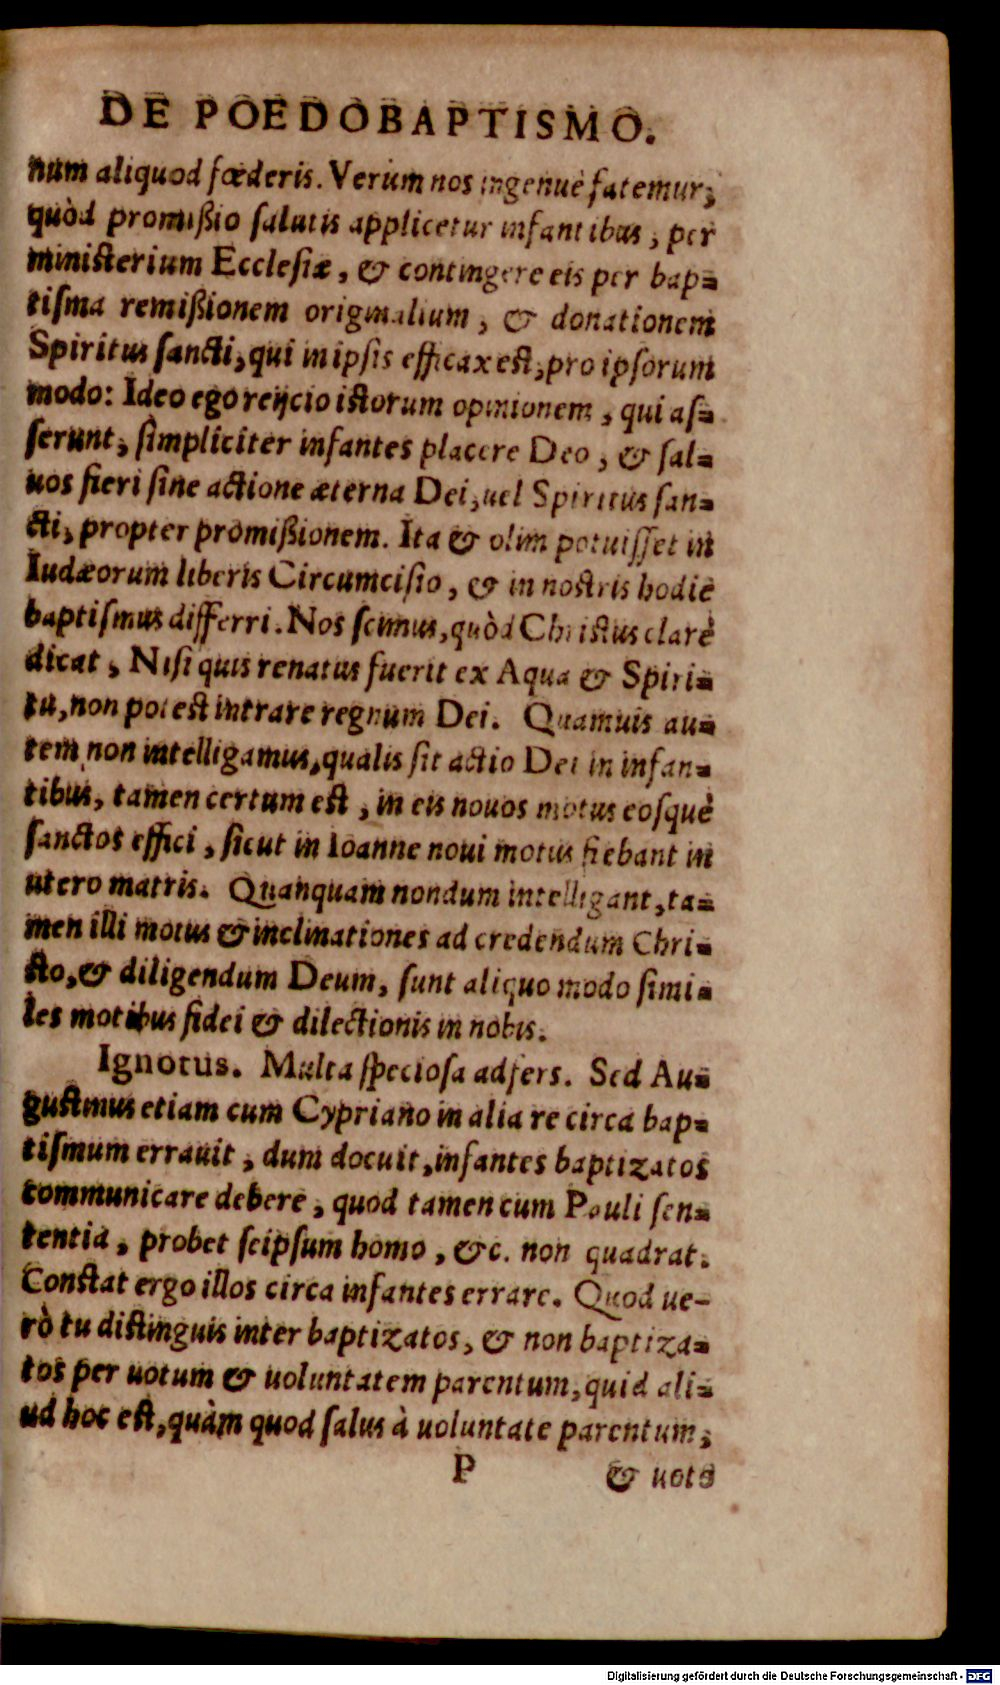 DE POEDOBAPTISMO.
num aliquod fœderis. Verùm nos ingenuè fatemur,
quòd promißio salutis applicetur infantibus, per
ministerium Ecclesiæ, & contingere eis per bap-
tisma remißionem originalium, & donationem
Spiritus sancti, qui in ipsis efficax est, pro ipsorum
modo: Ideo ego reijcio istorum opinionem, qui as-
serunt, simpliciter infantes placere Deo, & sal-
uos fieri sine actione æterna Dei, uel Spiritus san-
cti, propter promißionem. Ita & olim potuisset in
Iudæorum liberis Circumcisio, & in nostris hodie
baptismus differri. Nos scimus, quòd Christus clarè
dicat, Nisi quis renatus fuerit ex Aqua & Spiri-
tu, non potest intrare regnum Dei. Quamuis au-
tem non intelligamus, qualis sit actio Dei in infan-
tibus, tamen certum est, in eis nouos motus eosque
sanctos effici, sicut in Ioanne noui motus fiebant in
utero matris. Quanquam nondum intelligant, ta-
men illi motus & inclinationes ad credendum Chri-
sto, & diligendum Deum, sunt aliquo modo simi-
les motibus fidei & dilectionis in nobis.
Ignotus. Multa speciosa adfers. Sed Au-
gustinus etiam cum Cypriano in alia re circa bap-
tismum errauit, dum docuit, infantes baptizatos
communicare debere, quod tamen cum Pauli sen-
tentia, probet seipsum homo, &c. non quadrat.
Constat ergo illos circa infantes errare. Quod ue-
rò tu distinguis inter baptizatos, & non baptiza-
tos per uotum & uoluntatem parentum, quid ali-
ud hoc est, quàm quod salus à uoluntate parentum,
P & uoto
Digitalisierung gefördert durch die Deutsche Forschungsgemeinschaft - DFG